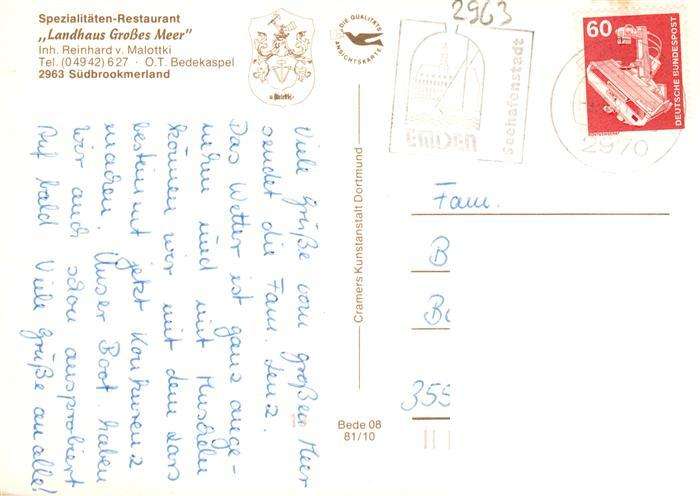 Spezialitäten-Restaurant
„Landhaus Großes Meer"
Inh. Reinhard v. Malottki
Tel. (0 49 42) 6 27 · O.T. Bedekaspel
2963 Südbrookmerland
DIE QUALITÄTS
ANSICHTSKARTE
2963
EMDEN
Seehafenstadt
60
DEUTSCHE BUNDESPOST
2970
Viele Grüße vom großen Meer
sendet die Fam. Lenz.
Das Wetter ist ganz ange-
nehm und mit Muscheln
können wir mit dem Lars
bestimmt jetzt Konkurenz
machen. Unser Boot haben
wir auch schon ausprobiert
Auf bald Viele Grüße an alle!
Cramers Kunstanstalt Dortmund
Bede 08
81/10
Fam.
B
355